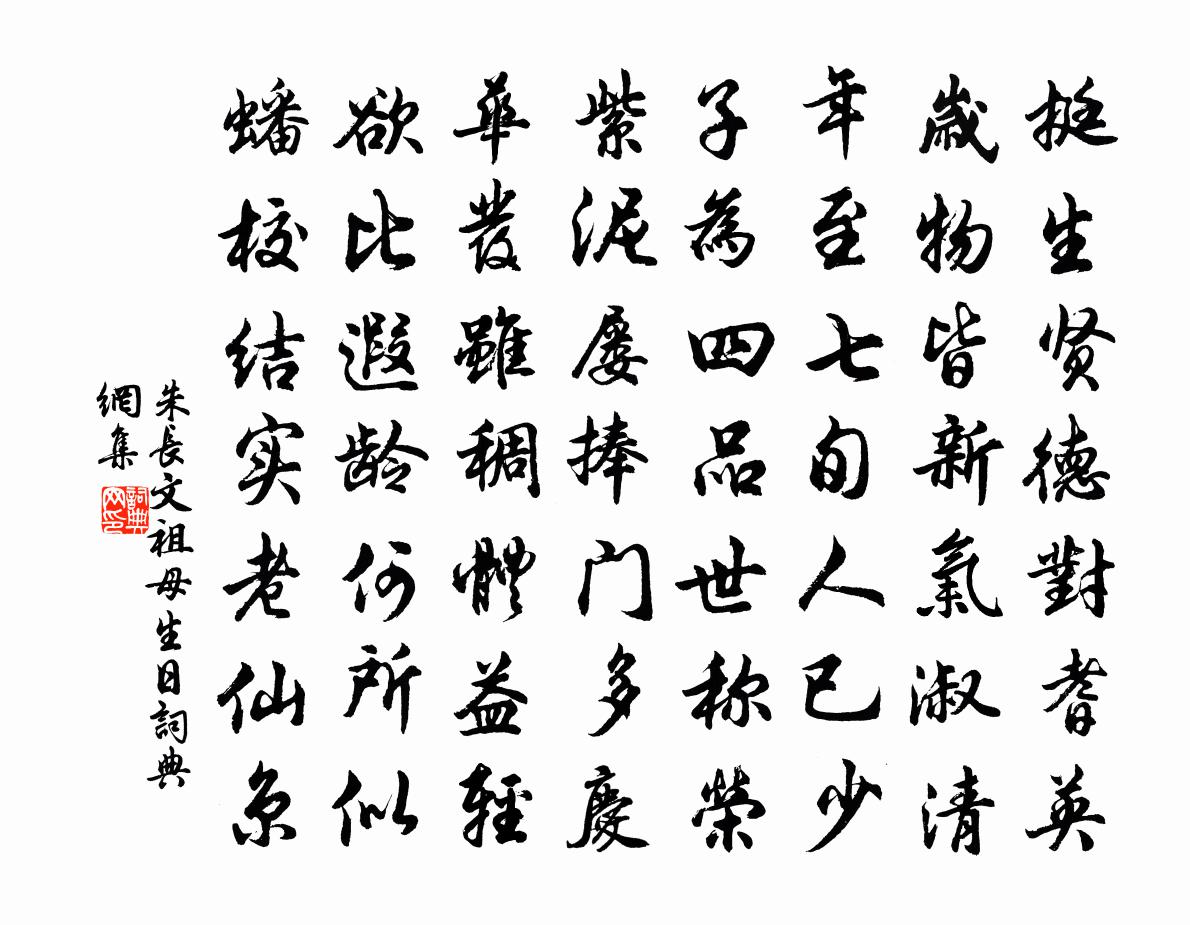 挺生贤德對耆英
歲物皆新氣淑清
年至七旬人已少
子為四品世称榮
紫泥屡捧门多慶
華發雖稠體益輕
欲比遐龄何所似
蟠校结实老仙京
朱長文祖母生日詞典
網集
詞典网印